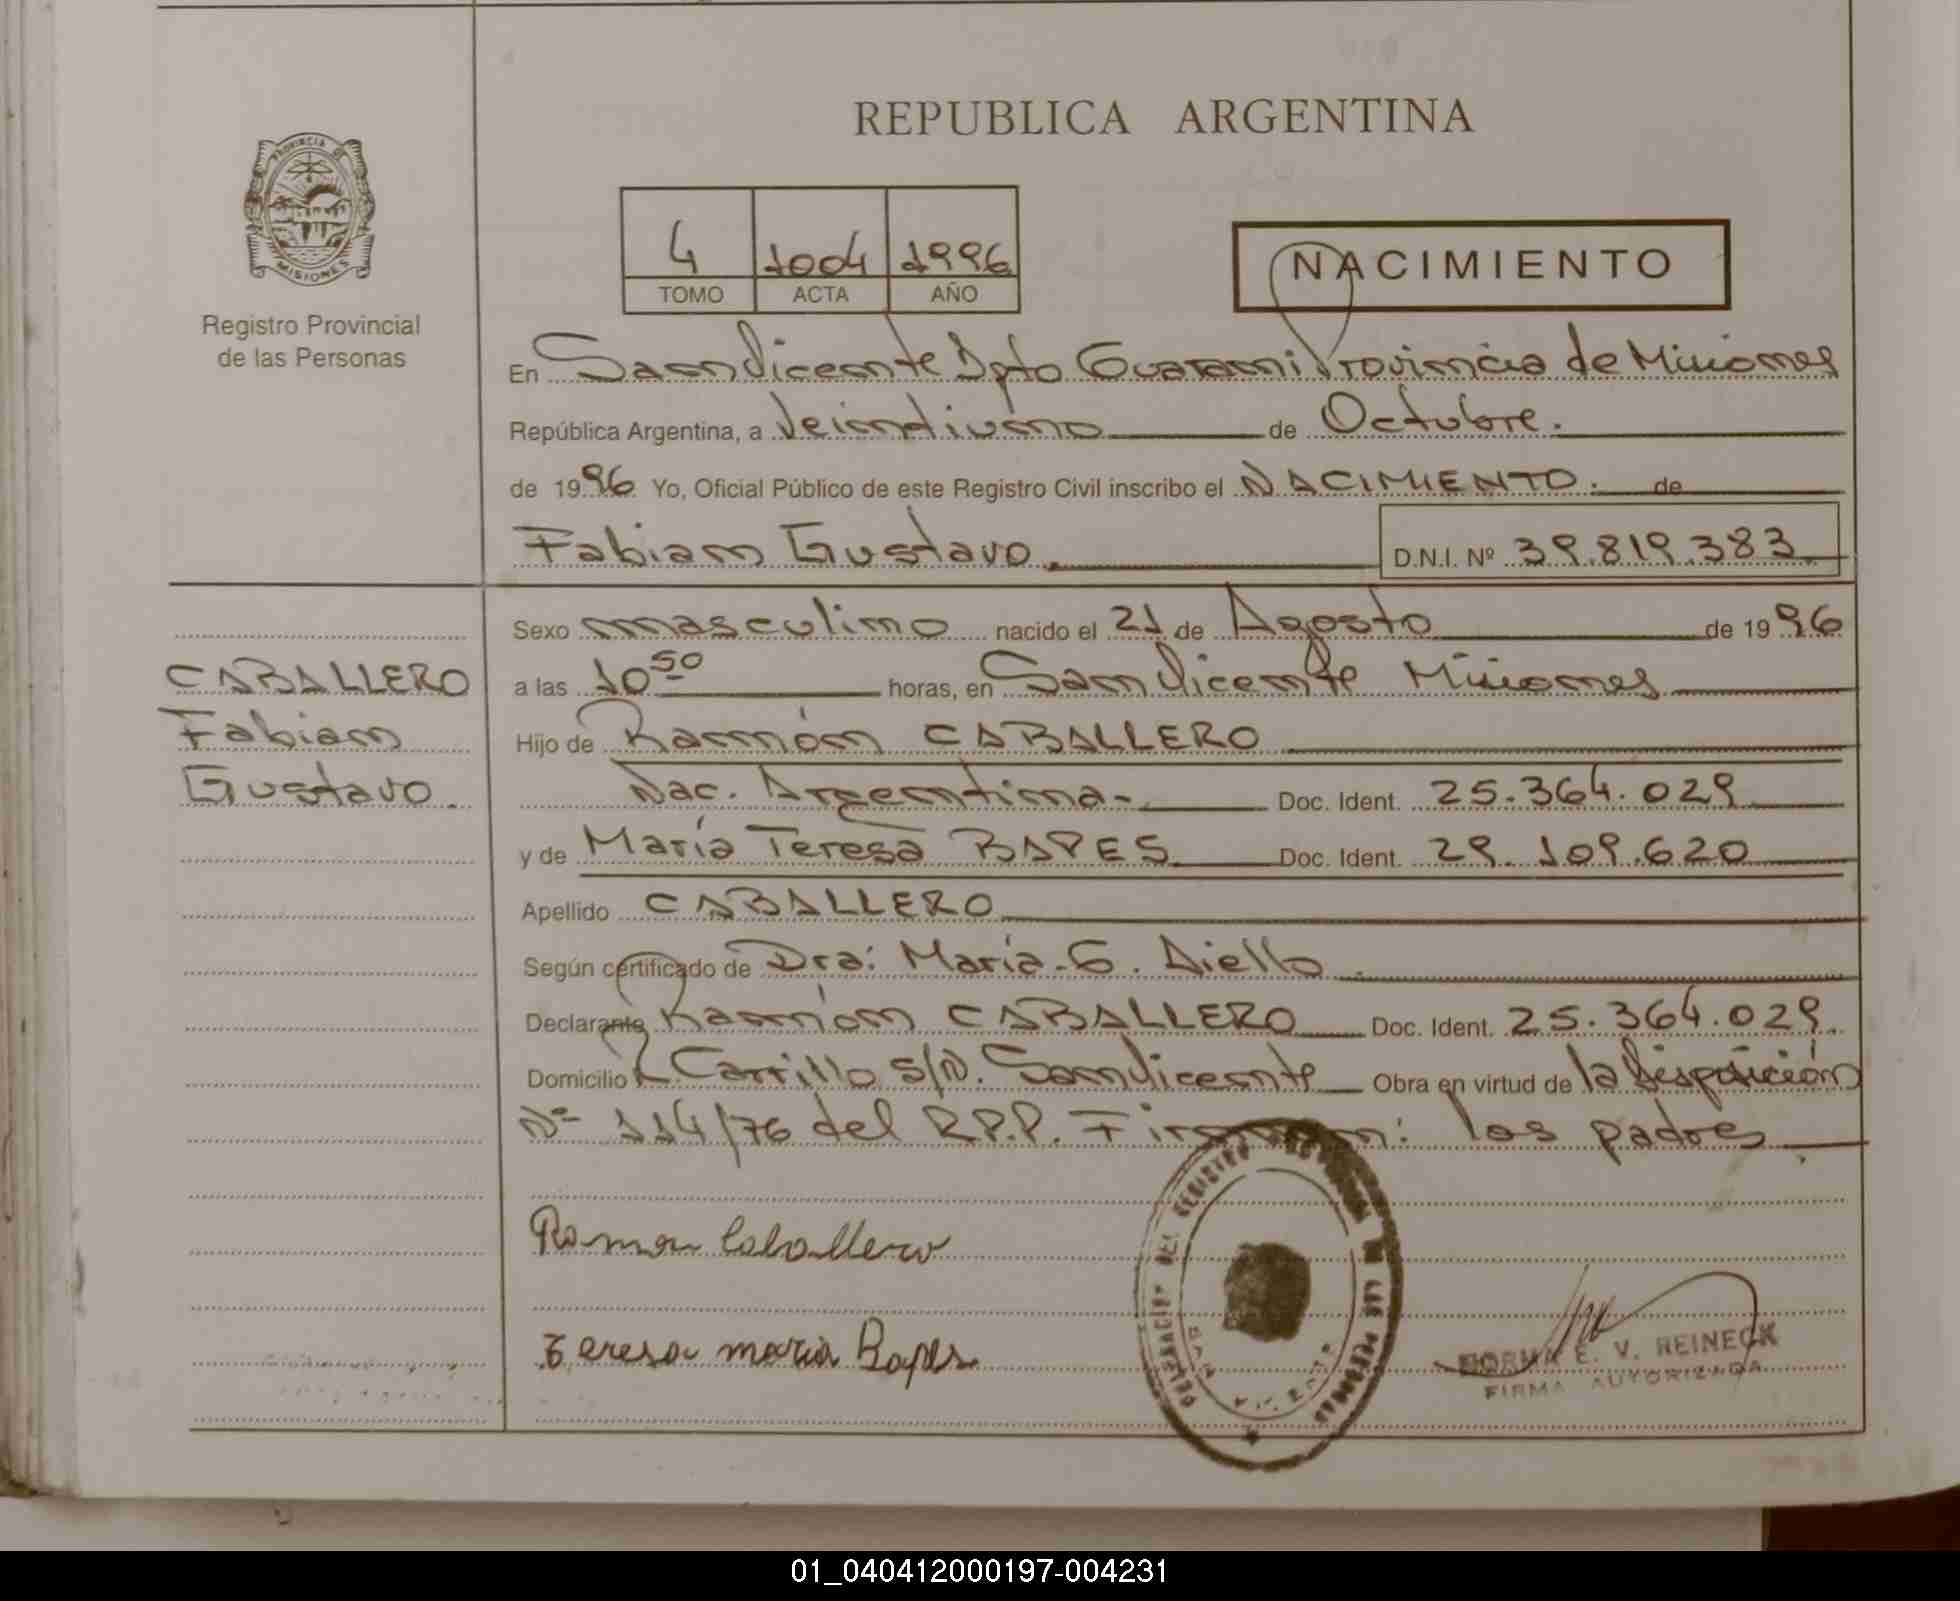 REPUBLICA ARGENTINA
PROVINCIA DE
MISIONES
Registro Provincial
de las Personas
4 1004 1996
TOMO ACTA AÑO
NACIMIENTO
En San Vicente Dpto Guarani Provincia de Misiones
República Argentina, a Veintiuno de Octubre.
de 1996 Yo, Oficial Público de este Registro Civil inscribo el NACIMIENTO. de
Fabian Gustavo. D.N.I. Nº 39.819.383
Sexo masculino nacido el 21 de Agosto de 1996
CABALLERO
Fabian
Gustavo.
a las 10 50 horas, en San Vicente Misiones
Hijo de Ramón CABALLERO
Nac. Argentina- Doc. Ident. 25.364.029
y de María Teresa BAPES Doc. Ident. 29.109.620
Apellido CABALLERO
Según certificado de Dra: María G. Aiello.
Declarante Ramón CABALLERO Doc. Ident. 25.364.029.
Domicilio R. Carrillo S/N. San Vicente Obra en virtud de la Disposición
Nº 114/76 del R.P.P. Firman: los padres
Ramon Caballero
Teresa maria Bapes
DELEGACION DEL REGISTRO DE LAS PERSONAS
NORMA E. V. REINECK
FIRMA AUTORIZADA
01_040412000197-004231